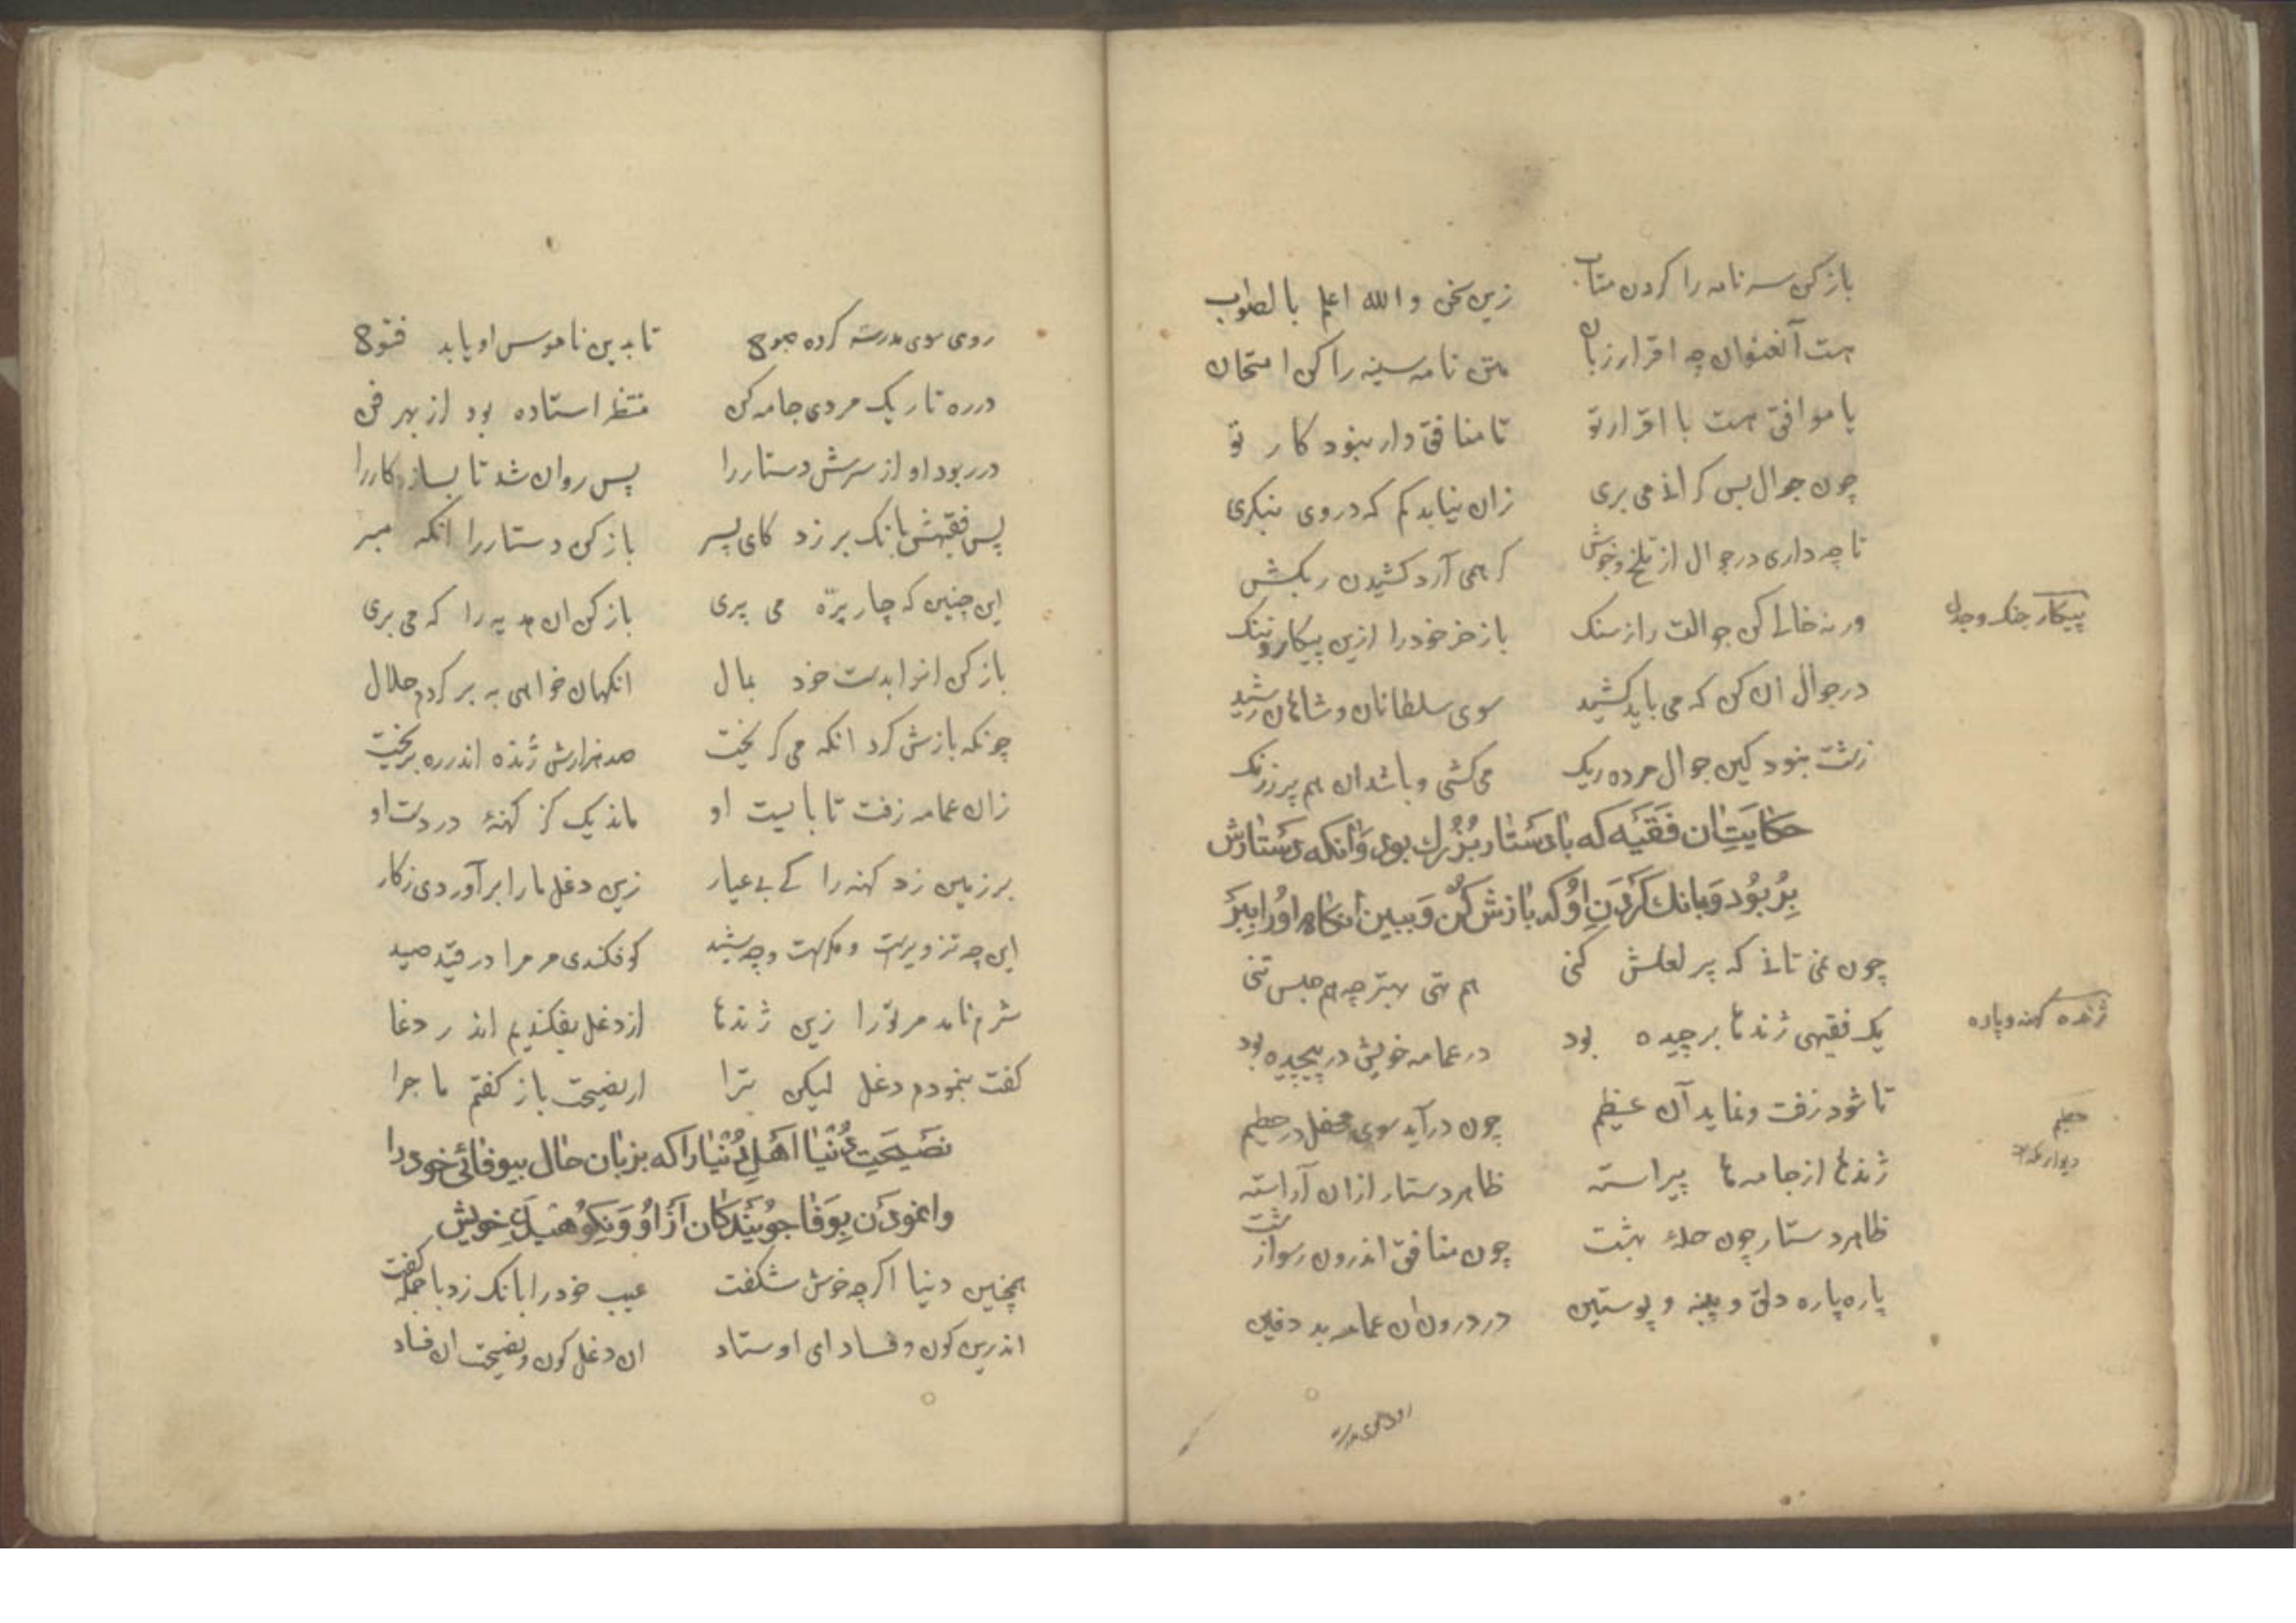 باز کن سرنامه را کردن متاب زین سخن والله اعلم بالصواب
هست آنعنوان چه اقرار زبان متن نامه سینه را کن امتحان
یا موافق هست با اقرار تو تا منافق وار نبود کار تو
چون جوال بس کرانی می بری زان نیاید کم که در وی بنکری
تا چه داری در جوال از تلخ و خوش کر همی آرد کشیدن ر بکش
ورنه خالی کن جوالت را ز سنک باز خر خود را ازین پیکار و ننک
پیکار جنک وجدل
در جوال ان کن که می باید کشید سوی سلطانان و شاهان رشید
زشت نبود کین جوال مرده ریک می کشی و باشد ان هم پر ز ریک
حکایت ان فقیه که با دستار بزرک بود و آنکه دستارش
بربود و بانک کردن او که بازش کن و ببین انکاه اورا ببر
چون نمی تانی که پر لعلش کنی هم تهی بهتر چه هم جنس تنی
یک فقیهی ژندها برچیده بود در عمامه خویش در پیچیده بود
ژنده کهنه و پاره
تا شود زفت و نماید آن عظیم چون در آید سوی محفل در حطیم
حطیم
دیوار کعبه
ژندها از جامه ها پیراسته ظاهر دستار ازان آراسته
ظاهر دستار چون حلهٔ بهشت چون منافق اندرون رسوا زشت
پاره پاره دلق و پنبه و پوستین در درون ان عمامه بد دفین
روی سوی مدرسه
روی سوی مدرسه کرده صبوح تا بدین ناموس او یابد فتوح
در ره تاریک مردی جامه کن منتظر استاده بود از بهر فن
در ربود او از سرش دستار را پس روان شد تا بسازد کار را
پس فقیهش بانک بر زد کای پسر باز کن دستار را انکه ببر
این چنین که چار پره می پری باز کن ان هدیه را که می بری
باز کن انرا بدست خود بمال انکهان خواهی ببر کردم حلال
چونکه بازش کرد انکه می کریخت صد هزارش ژنده اندر ره بریخت
زان عمامه زفت نا بابیست او ماند یک کز کهنهٔ در دست او
بر زمین زد کهنه را کی بی عیار زین دغل ما را بر آوردی ز کار
این چه تزویرست و مکرست و چه شید کو فکندی مر مرا در قید صید
شرم نامد مر ترا زین ژندها از دغل بفکندیم اندر دغا
کفت بنمودم دغل لیکن ترا از نصیحت باز کفتم ماجرا
نصیحت دنیا اهل دنیا را که بزبان حال بیوفائی خود را
وانمودن بوفا جویندکان از او و نکوهیدن خویش
همچنین دنیا اکرچه خوش شکفت عیب خود را بانک زد با جمله کفت
اندرین کون و فساد ای اوستاد ان دغل کون و نصیحت ان فساد